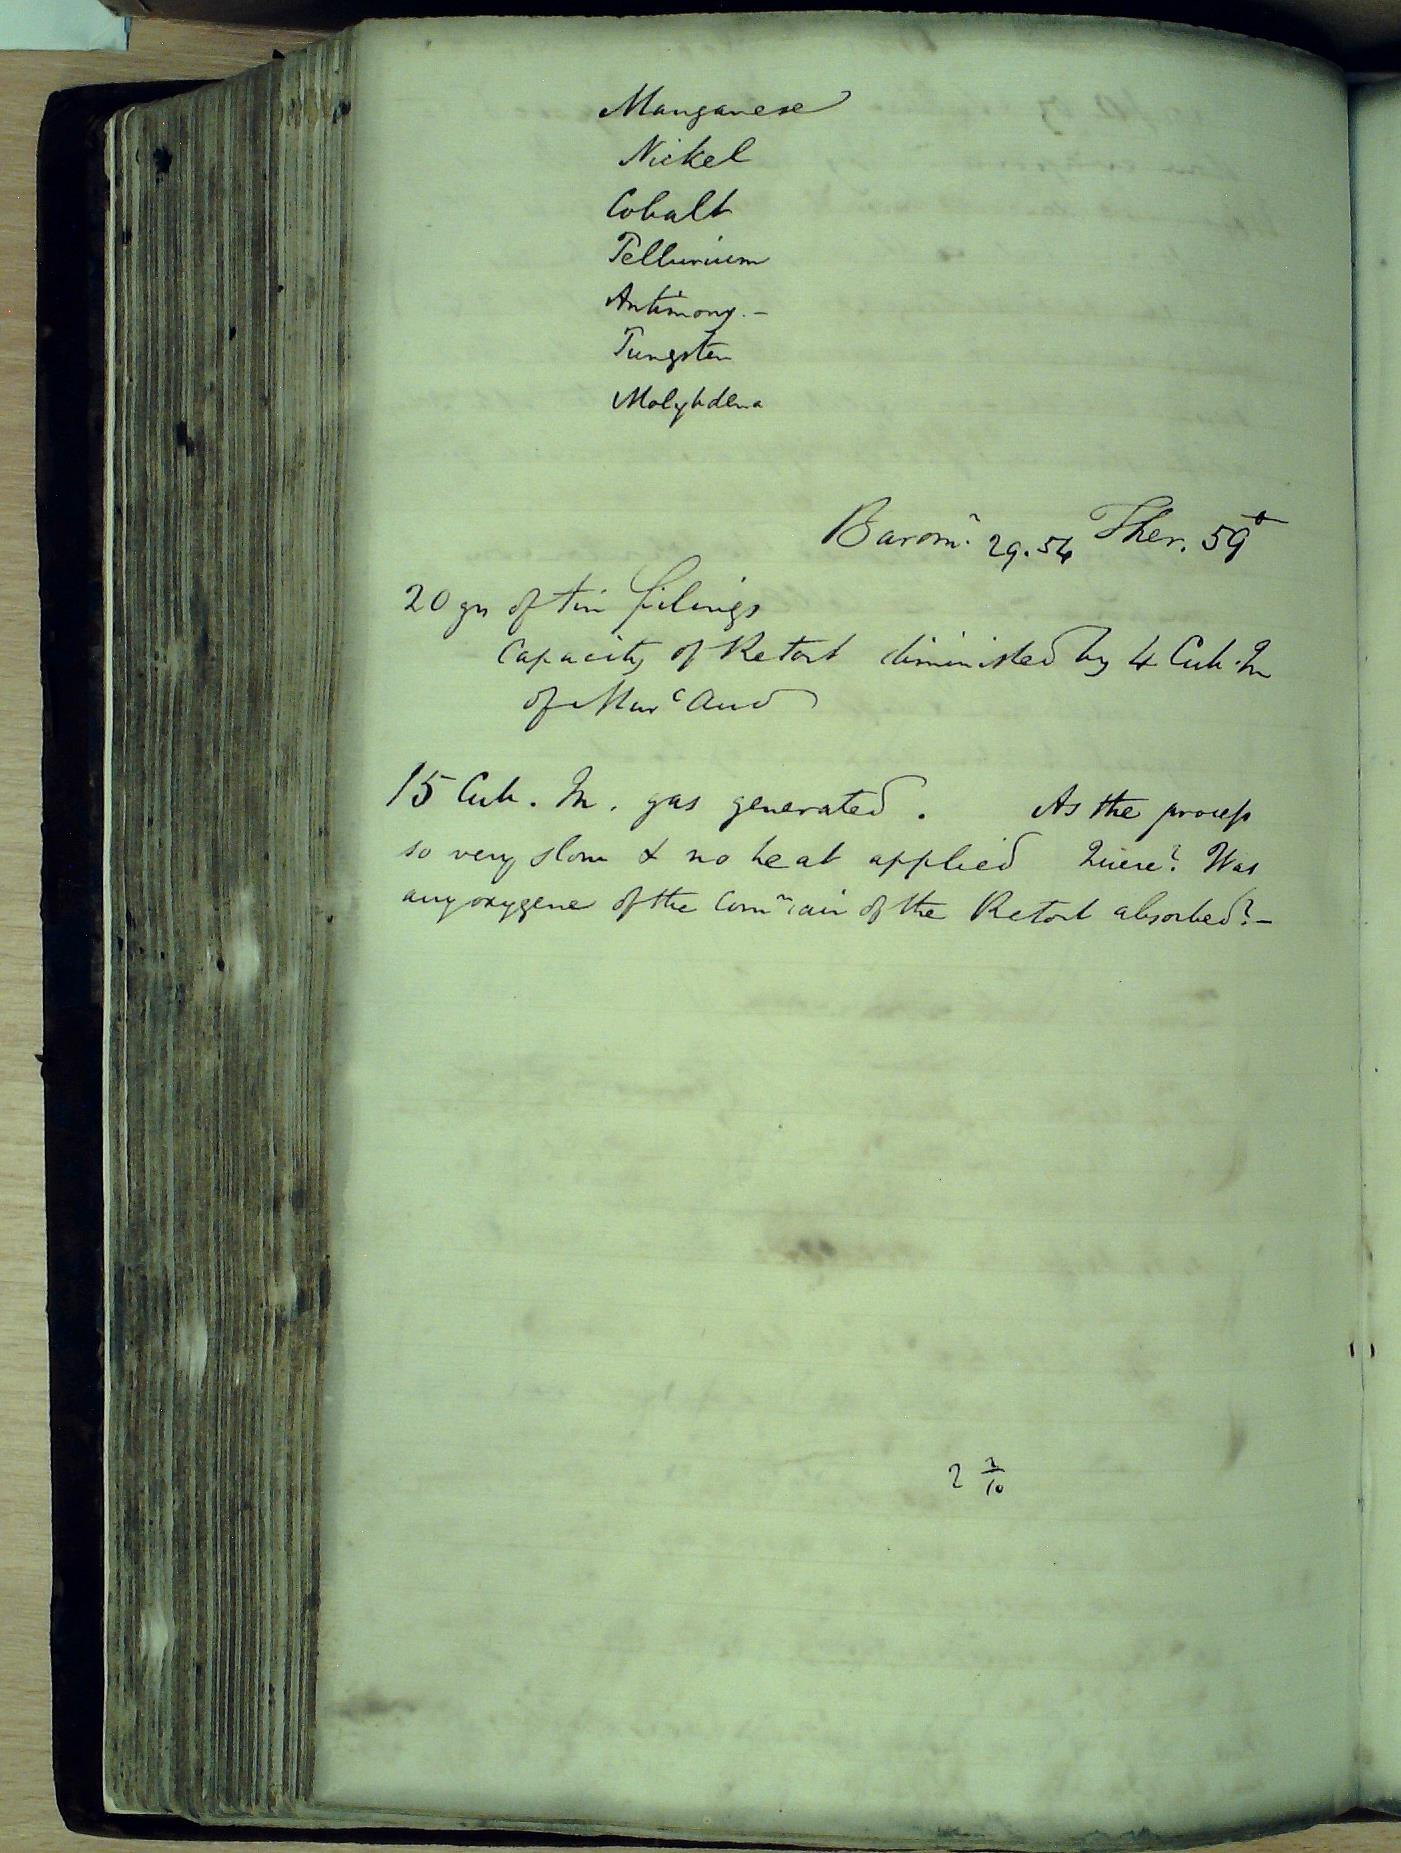 Manganese
Nickel
Cobalt
Tellurium
Antimony. -
Tungsten
Molybdena
Barom.r 29.54 Ther. 59°
20 grs of tin filings
Capacity of Retort diminished by 4 Cub. In
of Murc Acid
15 Cub. In. gas generated. As the process
so very slow & no heat applied Quere? Was
any oxygene of the Comn air of the Retort absorbed? -
2 2/10